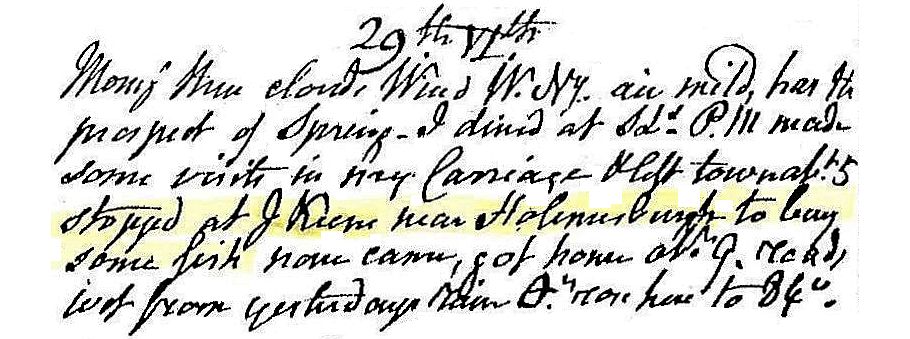 29th Vth
Morng thin clouds Wind W. Ny. air mild, has the
prospect of Spring - I dined at Sd's P.M made
some visits in my Carriage & left town abt. 5
stopped at J Keene near Holmesburgh to buy
some fish none came, got home abt 9. roads,
wet from yesterdays rain rose here to 84°.